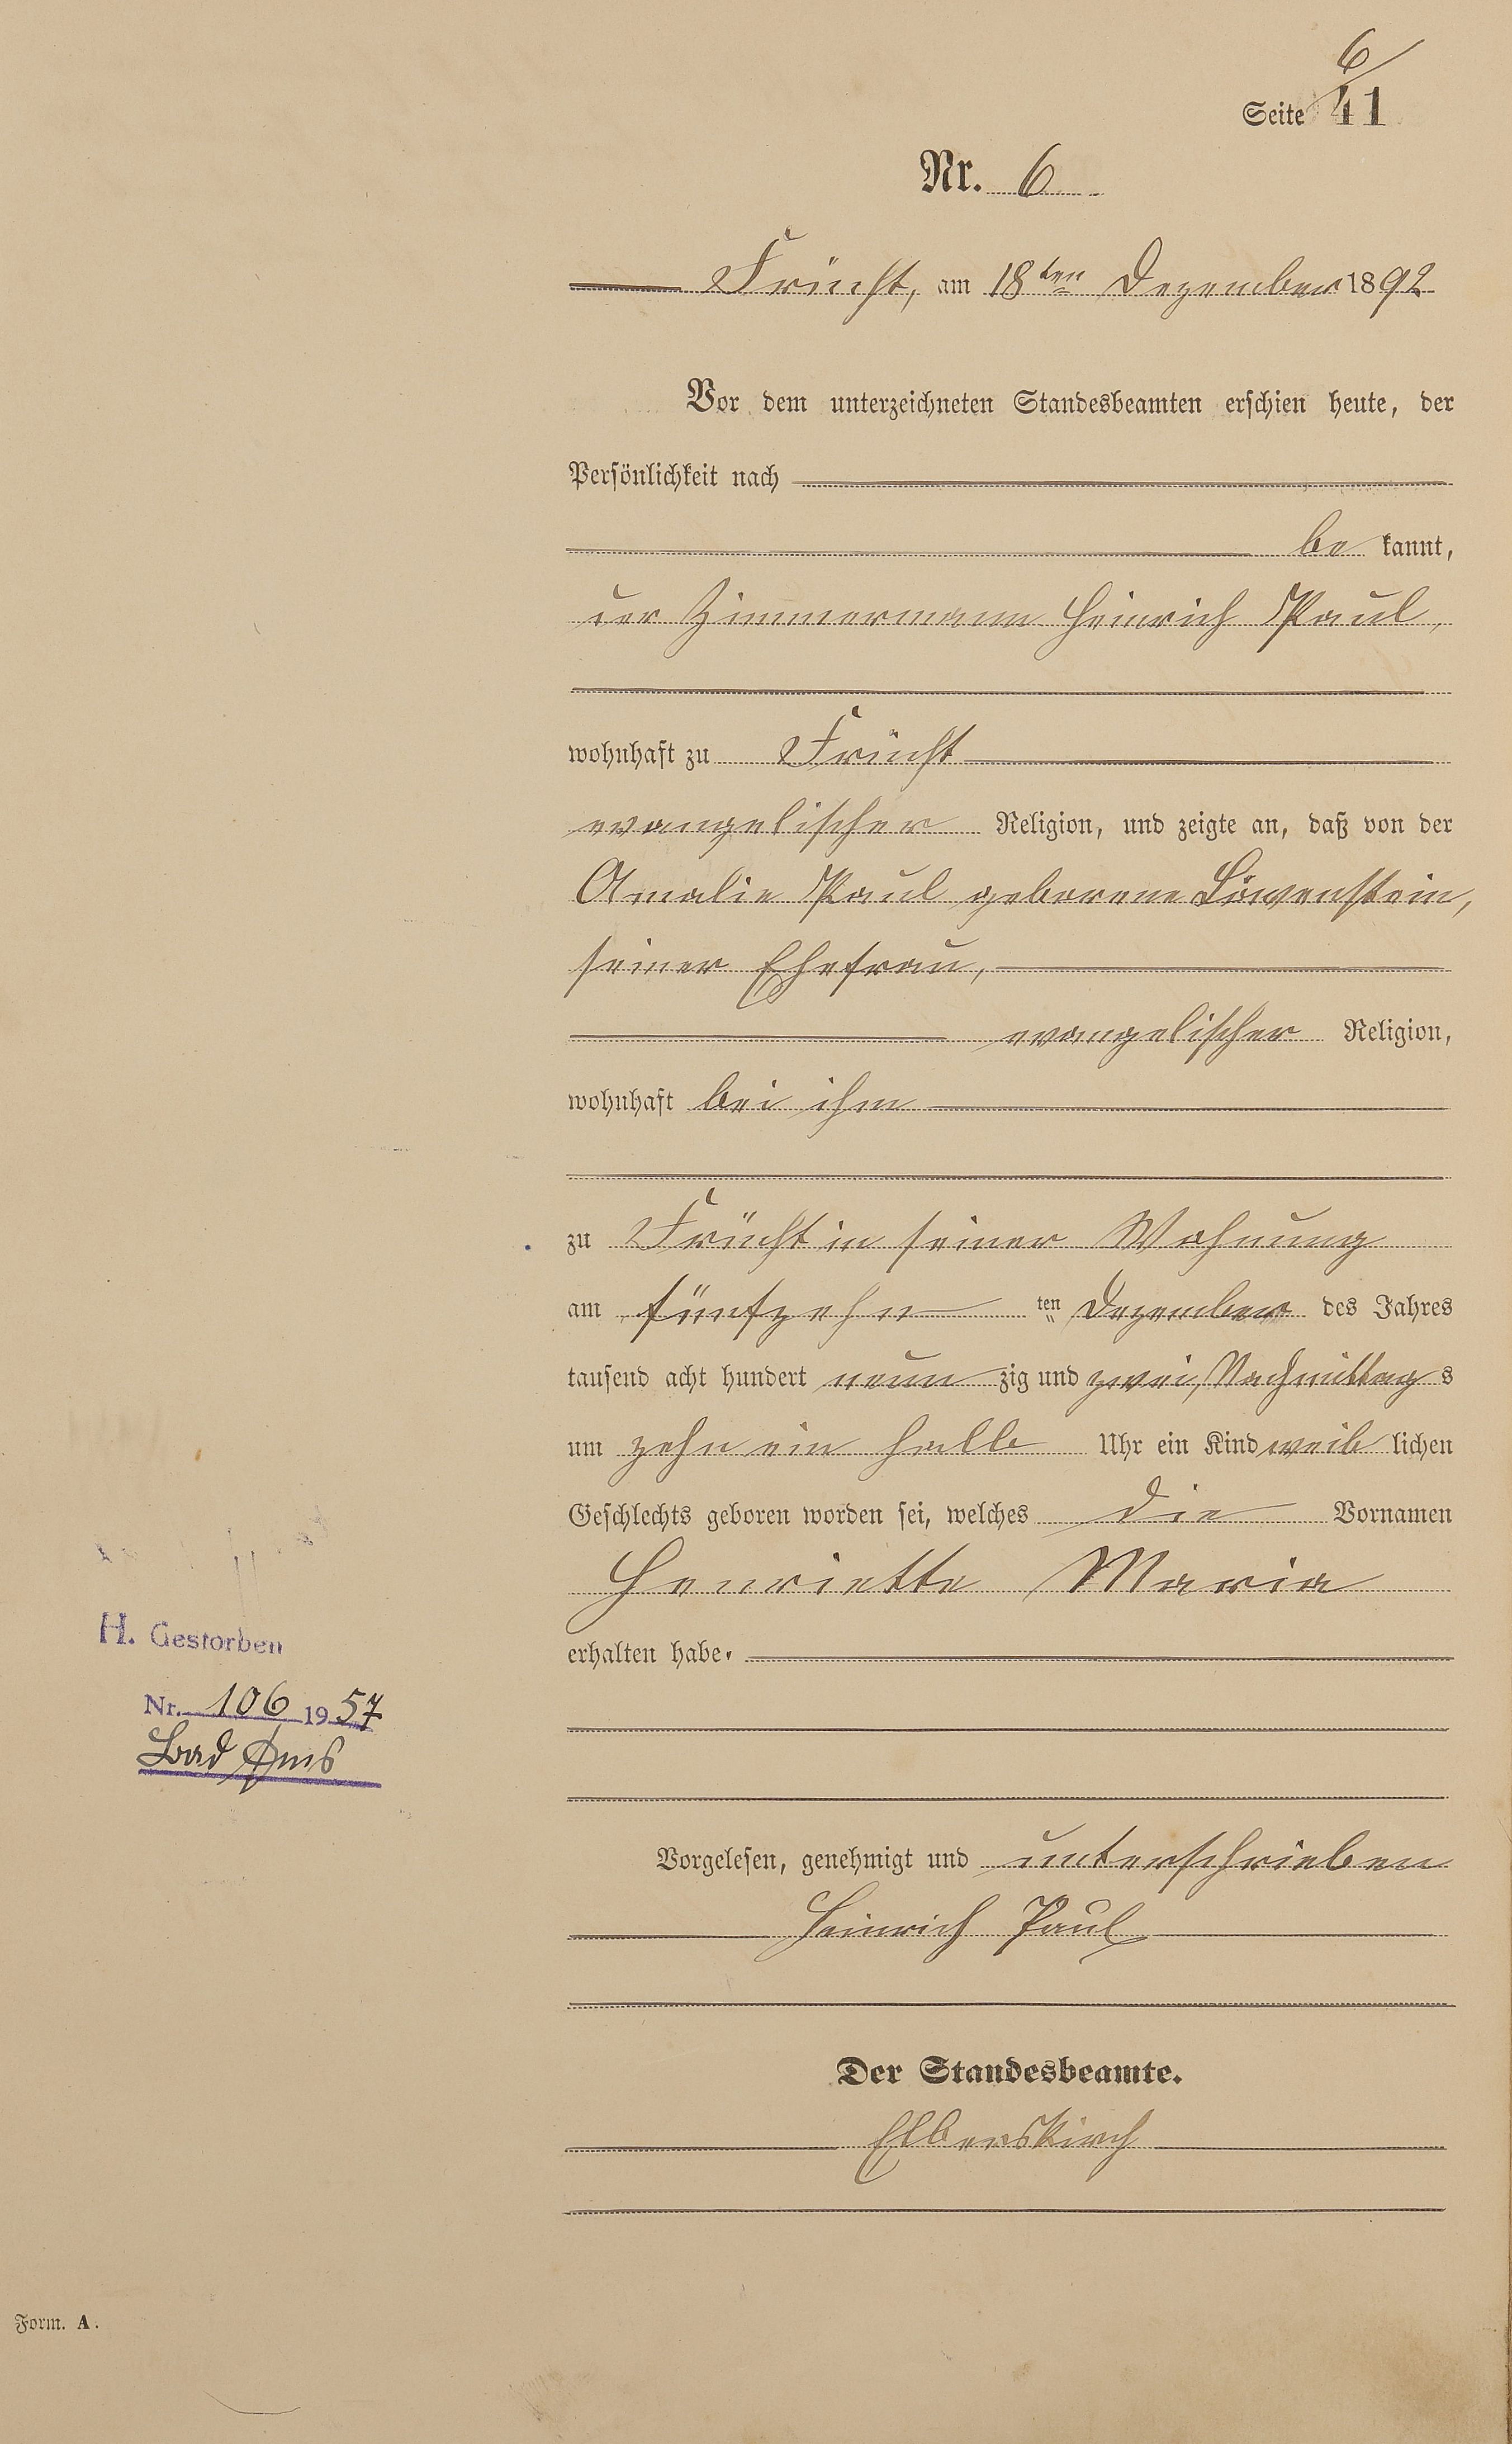 6
Seite 41
Nr. 6
Frücht, am 18ten Dezember 1892
Vor dem unterzeichneten Standesbeamten erschien heute, der
Persönlichkeit nach
be kannt,
der Zimmermann Heinrich Paul,
wohnhaft zu Frücht
evangelischer Religion, und zeigte an, daß von der
Amalie Paul geborene Löwenstein,
seiner Ehefrau,
evangelischer Religion,
wohnhaft bei ihm
zu Frücht in seiner Wohnung
am fünfzehn ten Dezember des Jahres
tausend acht hundert neun zig und zwei, Nachmittag s
um zehn ein halb Uhr ein Kind weib lichen
Geschlechts geboren worden sei, welches die Vornamen
Henriette Maria
erhalten habe.
H. Gestorben
Nr. 106 1957
Bad Ems
Vorgelesen, genehmigt und unterschrieben
Heinrich Paul
Der Standesbeamte.
Elberskirch
Form. A.